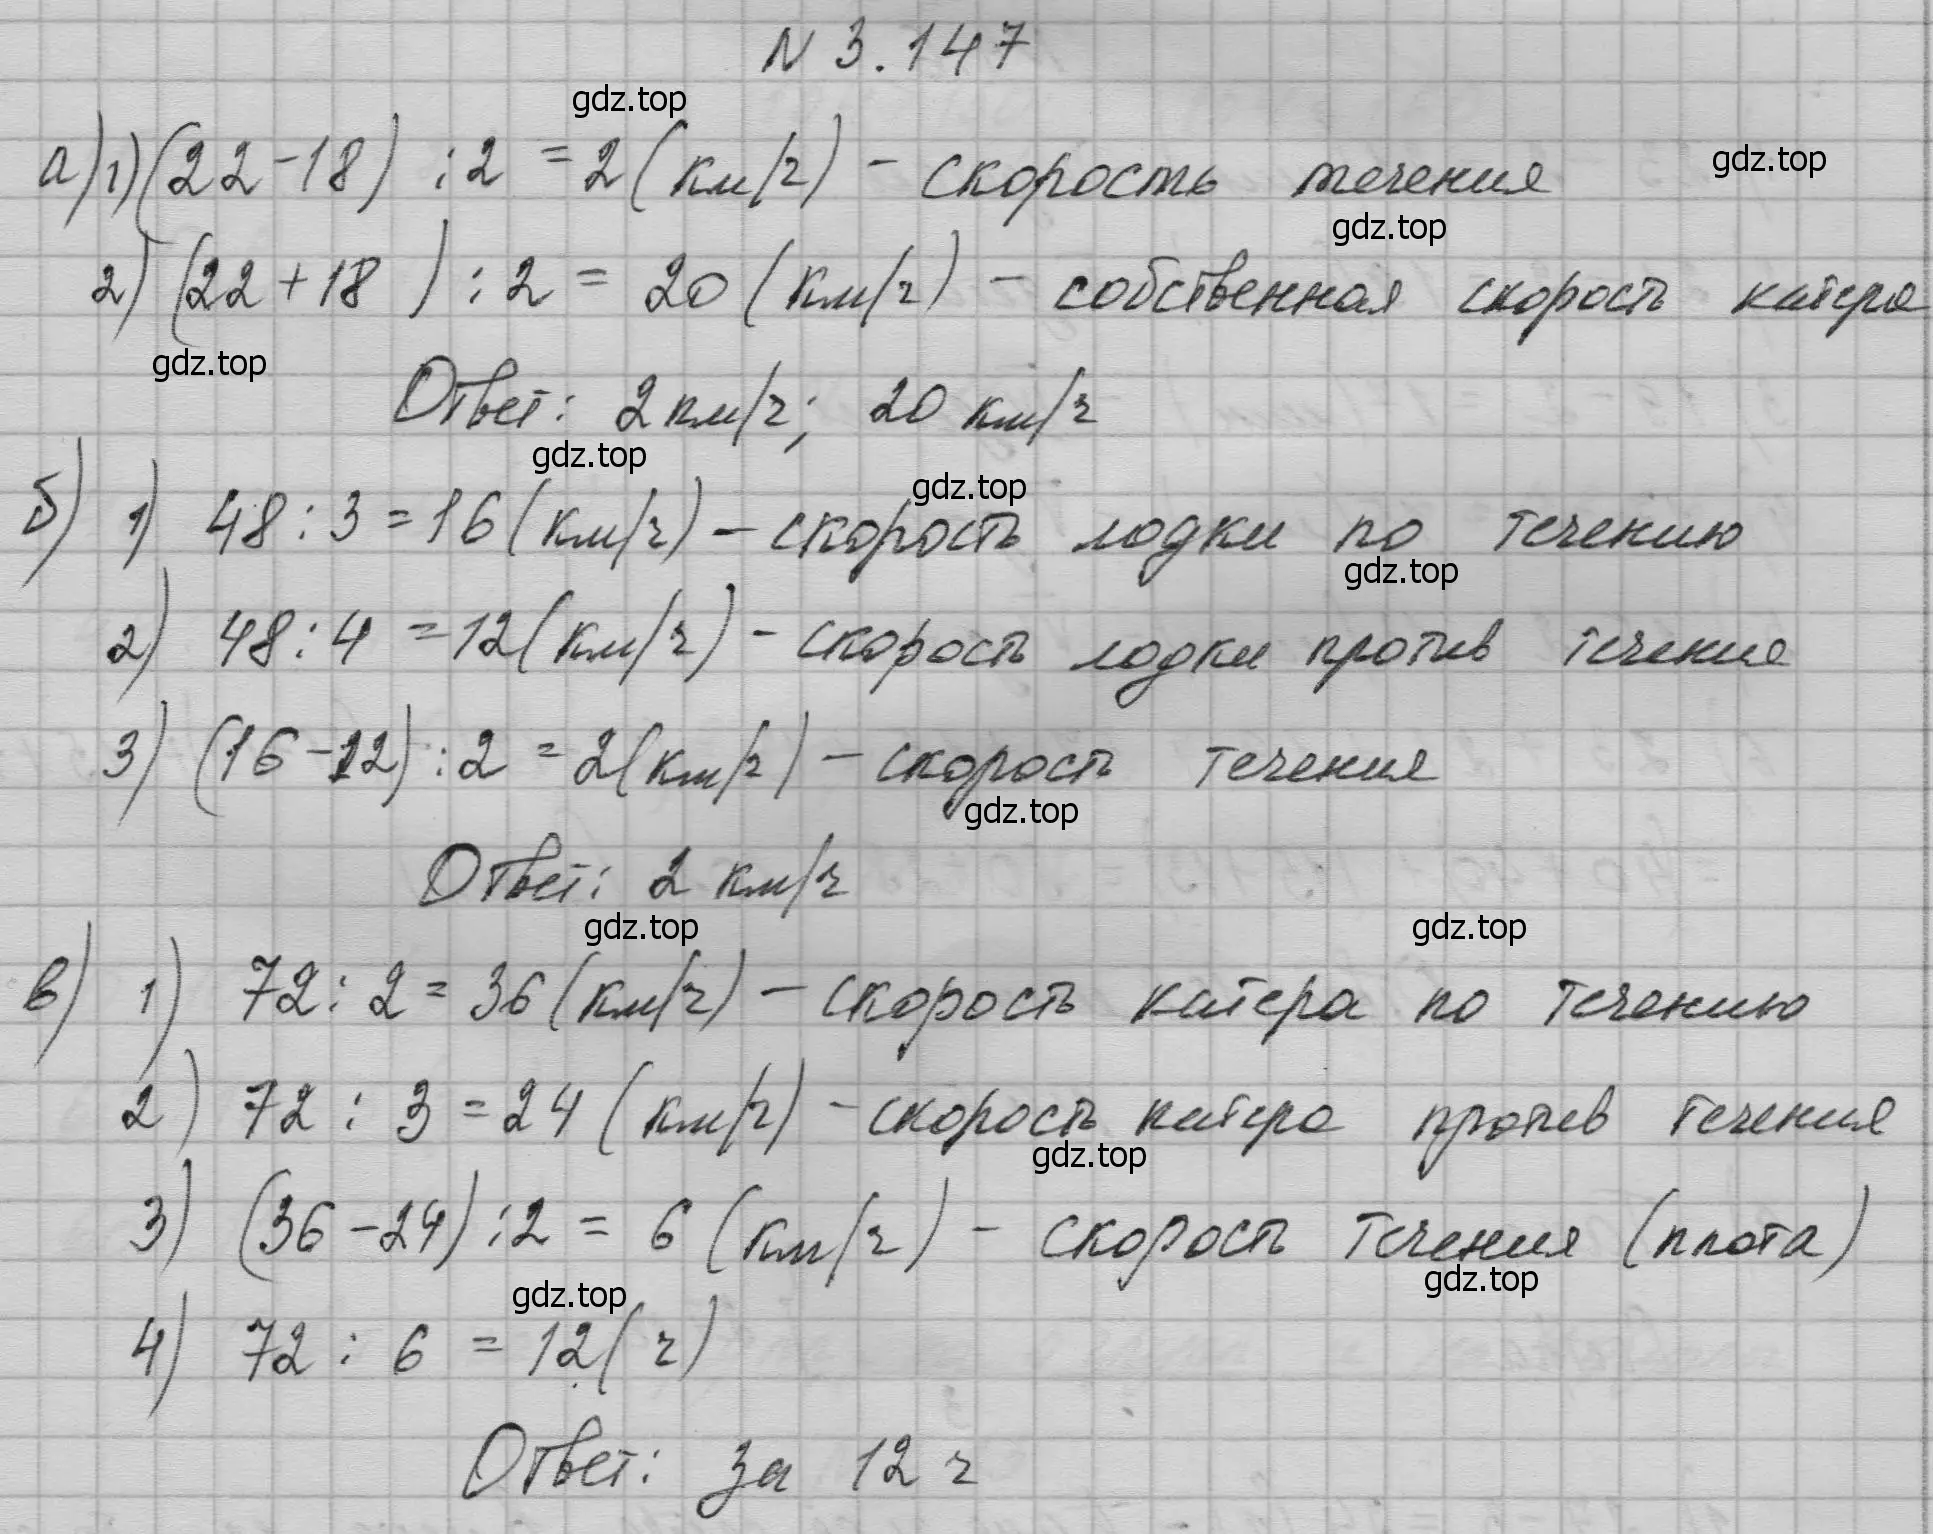 N 3.147
gdz.top
а) 1) (22-18) : 2 = 2 (км/ч) - скорость течения
gdz.top
gdz.top
2) (22+18) : 2 = 20 (км/ч) - собственная скорость катера
gdz.top
Ответ: 2 км/ч; 20 км/ч
gdz.top
gdz.top
б) 1) 48 : 3 = 16 (км/ч) - скорость лодки по течению
gdz.top
2) 48 : 4 = 12 (км/ч) - скорость лодки против течения
3) (16-12) : 2 = 2 (км/ч) - скорость течения
gdz.top
Ответ: 2 км/ч
gdz.top
gdz.top
в) 1) 72 : 2 = 36 (км/ч) - скорость катера по течению
2) 72 : 3 = 24 (км/ч) - скорость катера против течения
gdz.top
3) (36-24) : 2 = 6 (км/ч) - скорость течения (плота)
gdz.top
gdz.top
4) 72 : 6 = 12 (ч)
Ответ: за 12 ч